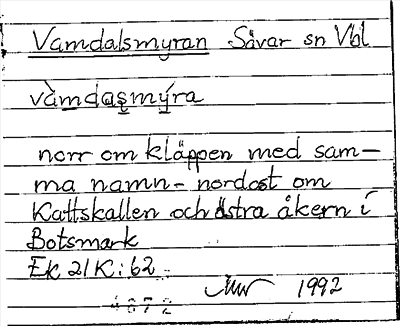 Vamdalsmyran Sävar sn Vbl
vàmdaʂmýra
norr om kläppen med sam-
ma namn - nordost om
Kattskallen och östra åkern i
Botsmark
Ek 21K:62
1992
4872